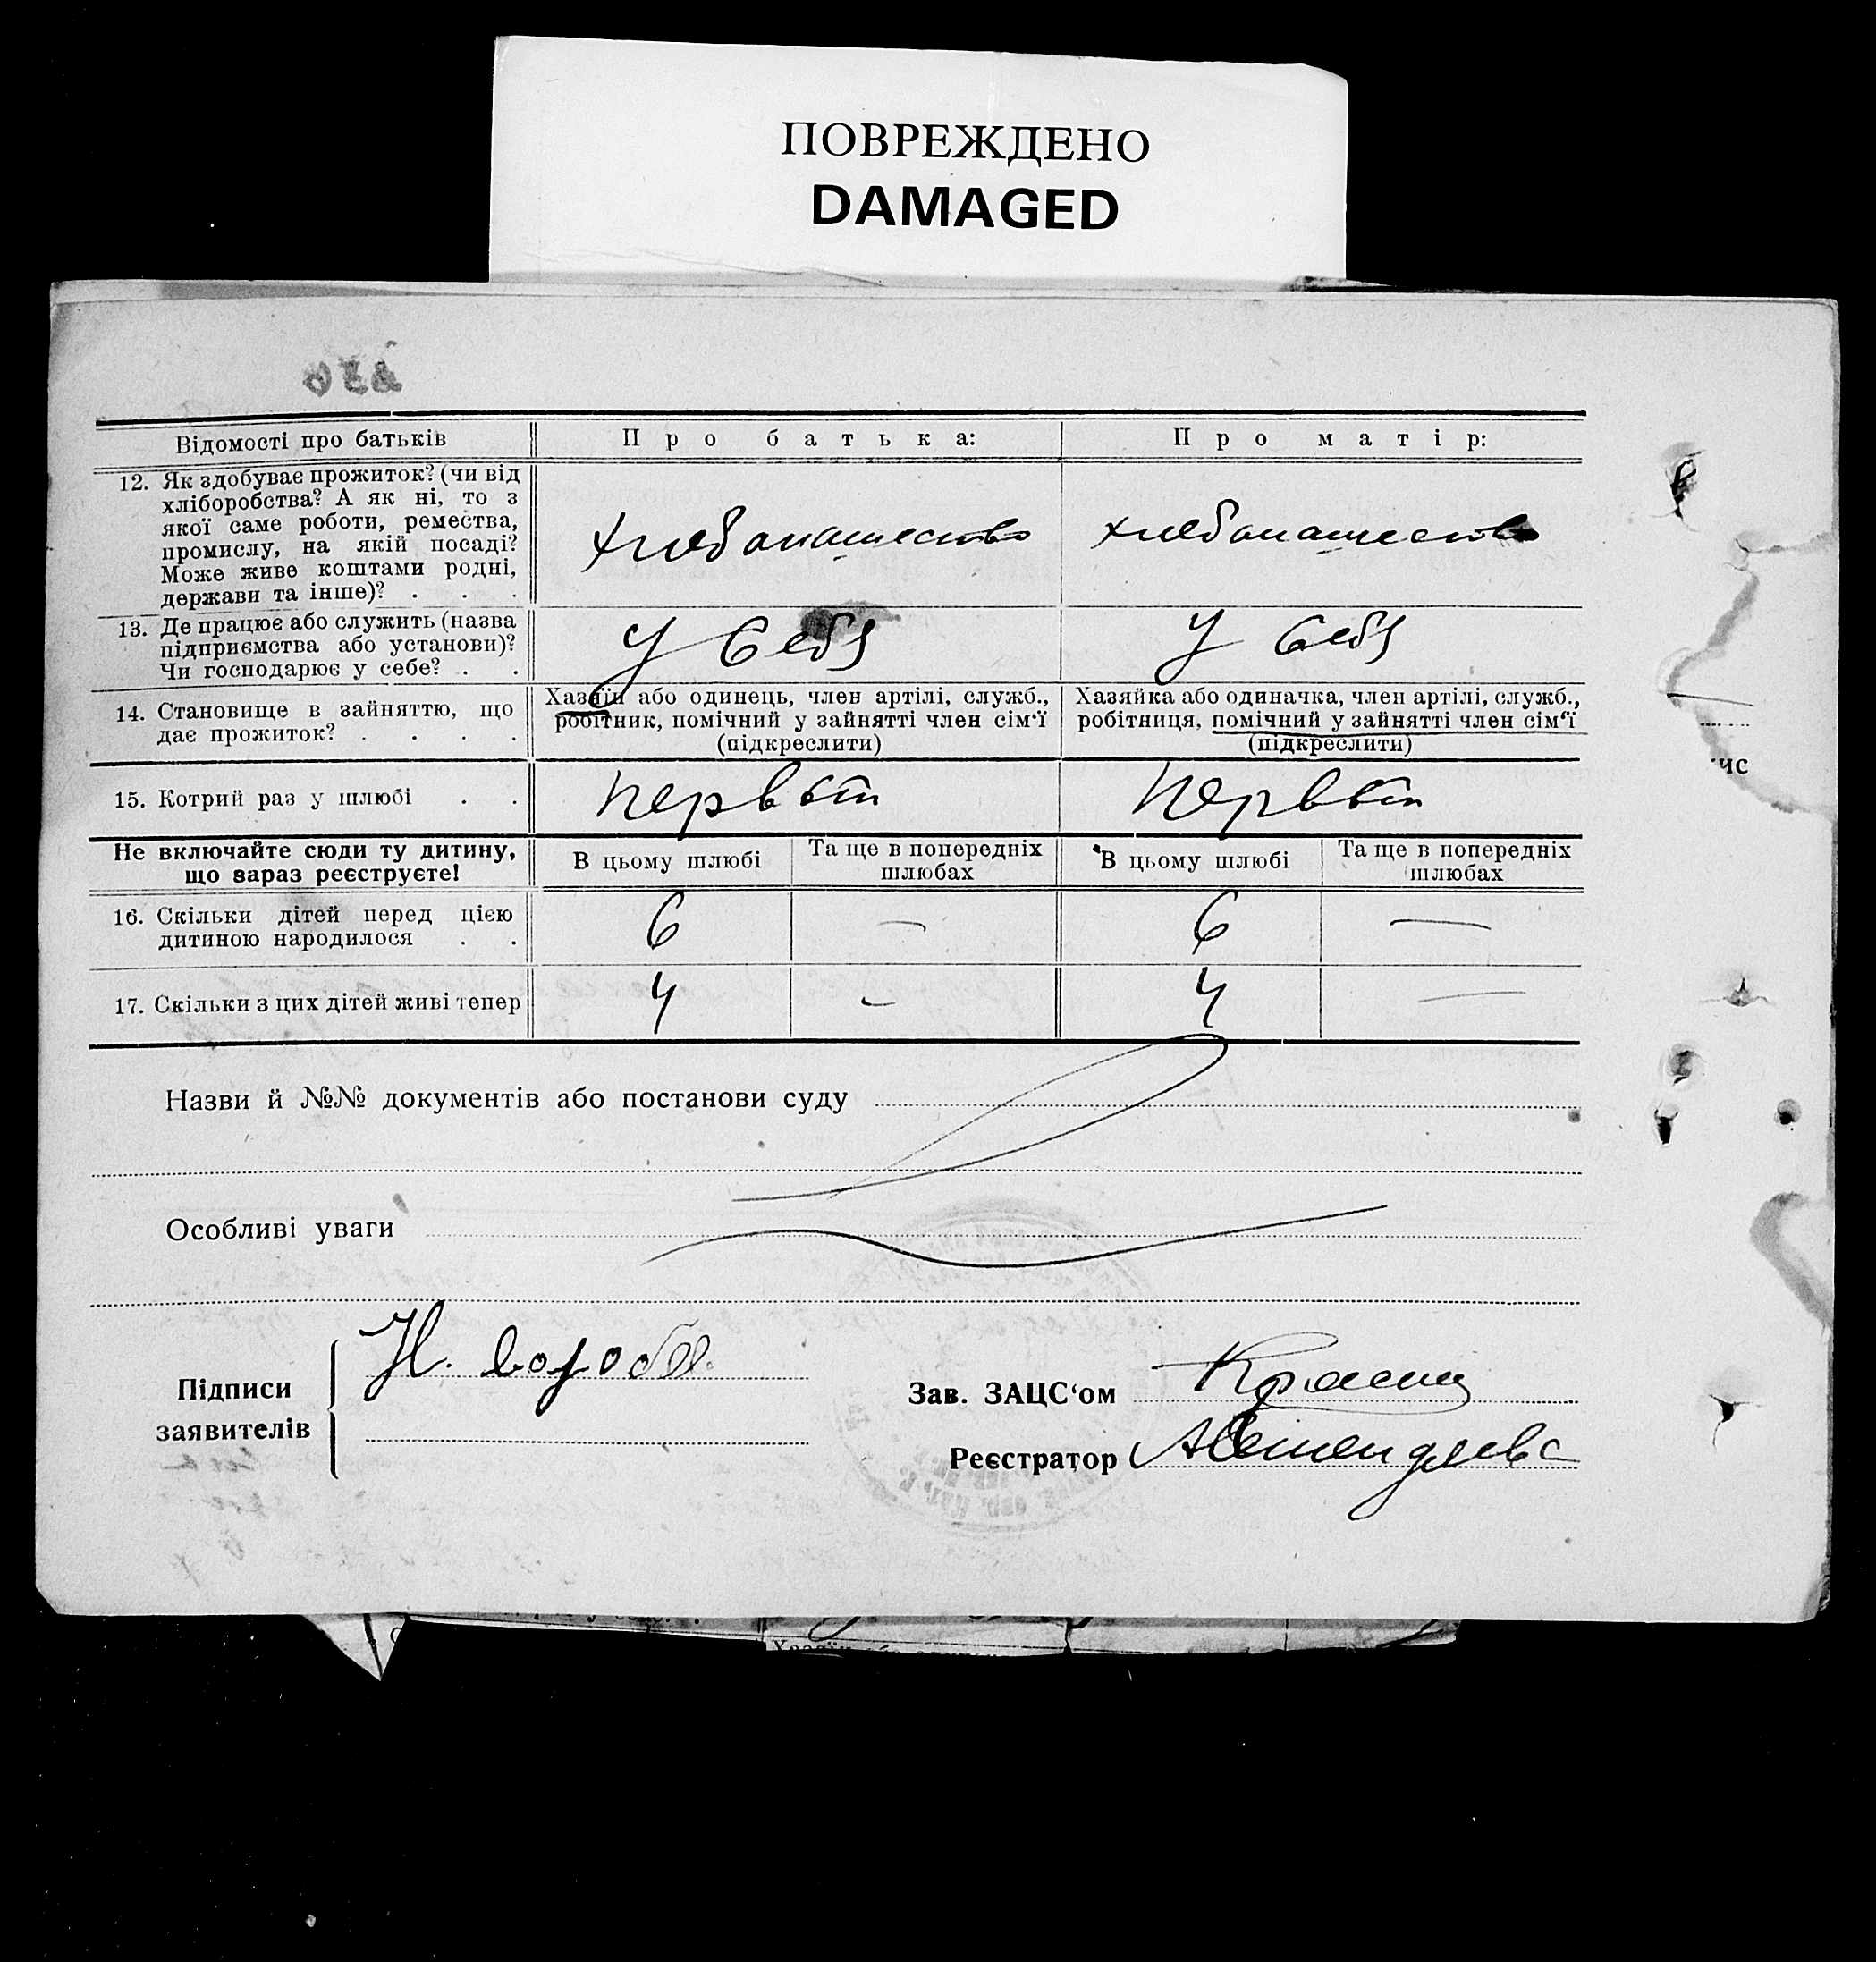 ПОВРЕЖДЕНО
DAMAGED
Відомості про батьків
Про батька:
Про матір:
12. Як здобуває прожиток? (чи від
хліборобства? А як ні, то з
якої саме роботи, ремества,
промислу, на якій посаді?
Може живе коштами родні,
держави та інше)? . . .
хлебопашество
хлебопашество
13. Де працює або служить (назва
підприємства або установи)?
Чи господарює у себе? . .
У себя
У себя
14. Становище в зайняттю, що
дає прожиток? . . . .
Хазяїн або одинець, член артілі, служб.,
робітник, помічний у зайнятті член сім‘ї
(підкреслити)
Хазяйка або одиначка, член артілі, служб.,
робітниця, помічний у зайнятті член сім‘ї
(підкреслити)
15. Котрий раз у шлюбі . .
Первый
Первый
Не включайте сюди ту дитину,
що зараз реєструєте!
В цьому шлюбі
Та ще в попередніх
шлюбах
В цьому шлюбі
Та ще в попередніх
шлюбах
16. Скільки дітей перед цією
дитиною народилося . .
6
—
6
—
17. Скільки з цих дітей живі тепер
4
-
4
—
Назви й №№ документів або постанови суду
Особливі уваги
Підписи
заявителів
Н.
Зав. ЗАЦС‘ом
Реєстратор
ис